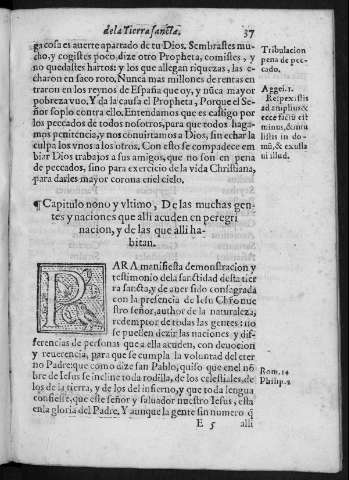 de la Tierra sancta. 37
ga cosa es auerte apartado de tu Dios. Sembrastes mu-
cho, y cogistes poco, dize otro Propheta, comistes, y
no quedastes hartos: y los que allegan riquezas, las e-
charon en saco roto. Nunca mas millones de rentas en
traron en los reynos de España que oy, y nũca mayor
pobreza vuo, Y da la causa el Propheta, Porque el Se-
ñor soplo contra ello. Entendamos que es castigo por
los peccados de todos nosotros, para que todos haga-
mos penitencia, y nos conuirtamos a Dios, sin echar la
culpa los vnos a los otros. Con esto se compadece em
biar Dios trabajos a sus amigos, que no son en pena
de peccados, sino para exercicio de la vida Christiana,
para darles mayor corona en el cielo.
Tribulacion
pena de pec-
cado.
Aggei. 1.
Respexistis
ad amplius &
ecce factũ est
minus, & intu
listis in do-
mũ, & exuffla
ui illud.
¶ Capitulo nono y vltimo, De las muchas gen-
tes y naciones que alli acuden en peregri
nacion, y de las que alli ha-
bitan.
PARA manifiesta demonstracion y
testimonio de la sanctidad desta tier
ra sancta, y de auer sido consagrada
con la presencia de Iesu Chřo nue
stro señor, author de la naturaleza,
redemptor de todas las gentes: no
se pueden dezir las naciones y dif-
ferencias de personas que a ella acuden, con deuocion
y reuerencia, para que se cumpla la voluntad del eter
no Padre: que como dize san Pablo, quiso que en el nõ
bre de Iesus se incline toda rodilla, de los celestiales, de
los de la tierra, y de los del infierno, y que toda lengua
confiesse, que este señor y saluador nuestro Iesus, esta
en la gloria del Padre. Y aunque la gente sin numero q̃
Rom. 14
Philip. 2
E 5 alli